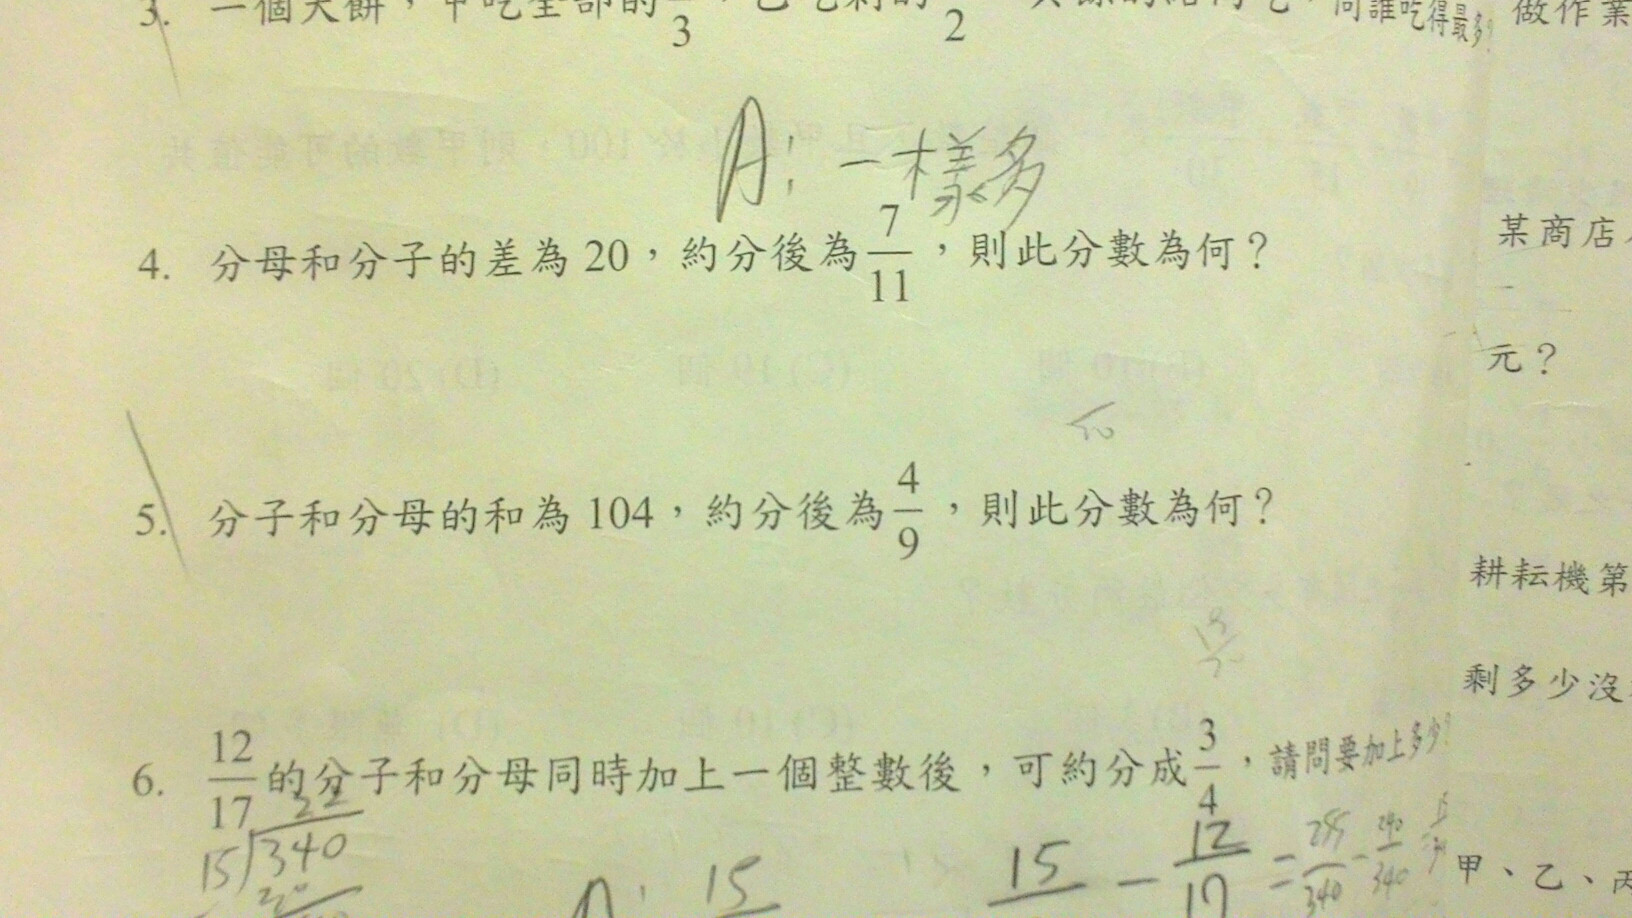 3. 一個大餅，甲吃全部的 /3，乙吃剩的 /2 其餘的給丙吃，問誰吃得最多？ 做作業
A: 一樣多
4. 分母和分子的差為 20，約分後為 7/11，則此分數為何？
某商店
元？
5. 分子和分母的和為 104，約分後為 4/9，則此分數為何？
耕耘機第
剩多少沒
6. 12/17 的分子和分母同時加上一個整數後，可約分成 3/4，請問要加上多少？
22
15 340
15 - 12/17 = 255/340 - 240/340
A: 15
甲、乙、丙